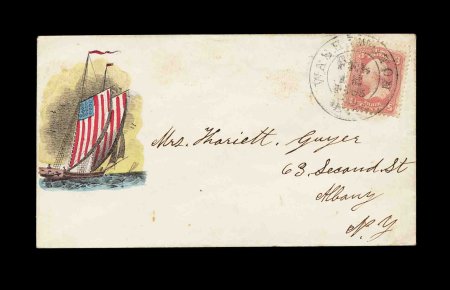 WASHINGTON
Mrs. Hariett. Guyer
63 Second. St
Albany
N.Y